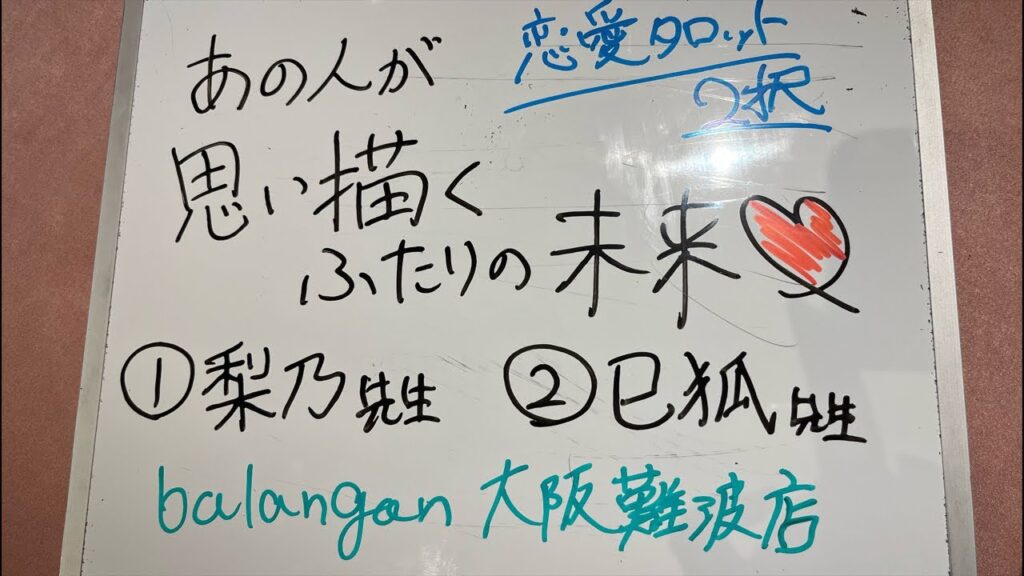 恋愛タロット
2択
あの人が
思い描く
ふたりの未来
①梨乃先生 ②巳狐先生
balangan 大阪難波店